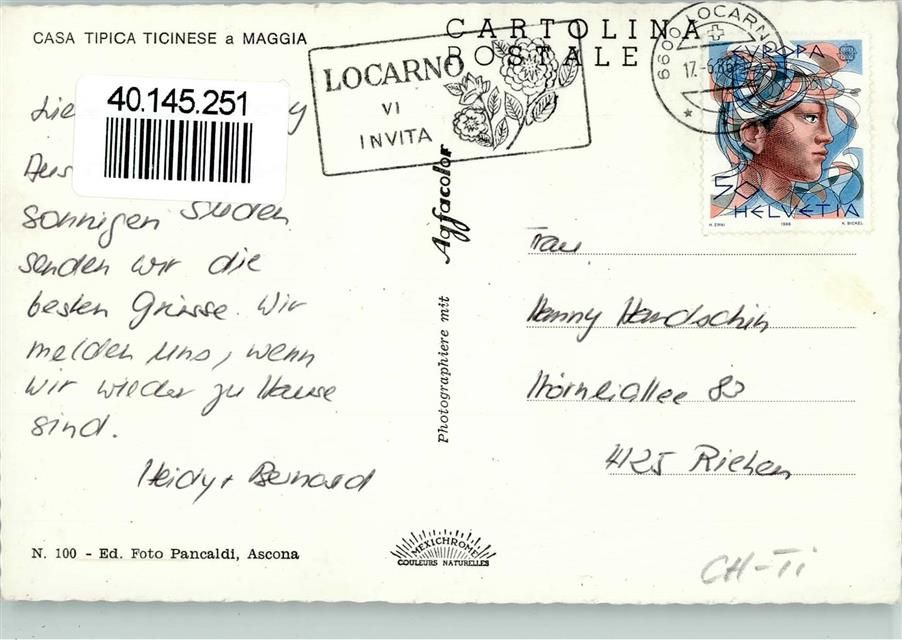 CARTOLINA
POSTALE
CASA TIPICA TICINESE a MAGGIA
LOCARNO
VI
INVITA
6600 LOCARNO
17.-6.86
EVROPA
50
HELVETIA
H. ERNI 1986 K. BICKEL
40.145.251
sonnigen Süden
senden wir die
besten Grüsse. Wir
melden uns, wenn
wir wieder zu Hause
sind.
Heidy + Bernard
Agfacolor
Photographiere mit
Frau
Hanny Handschin
Hörnliallee 83
4125 Riehen
N. 100 - Ed. Foto Pancaldi, Ascona
MEXICHROME
COULEURS NATURELLES
CH-Ti